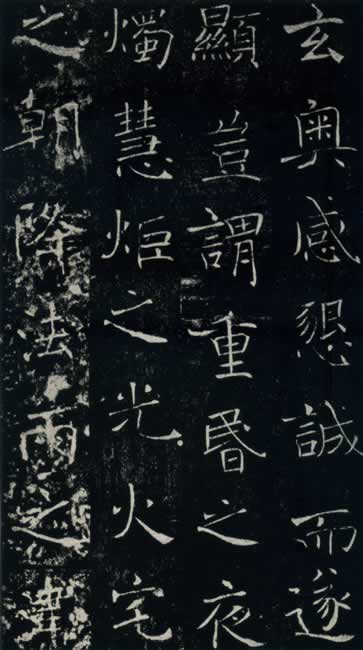 玄奧感懇誠而遂
顯豈謂重昬之夜
燭慧炬之光火宅
之朝降法雨之澤